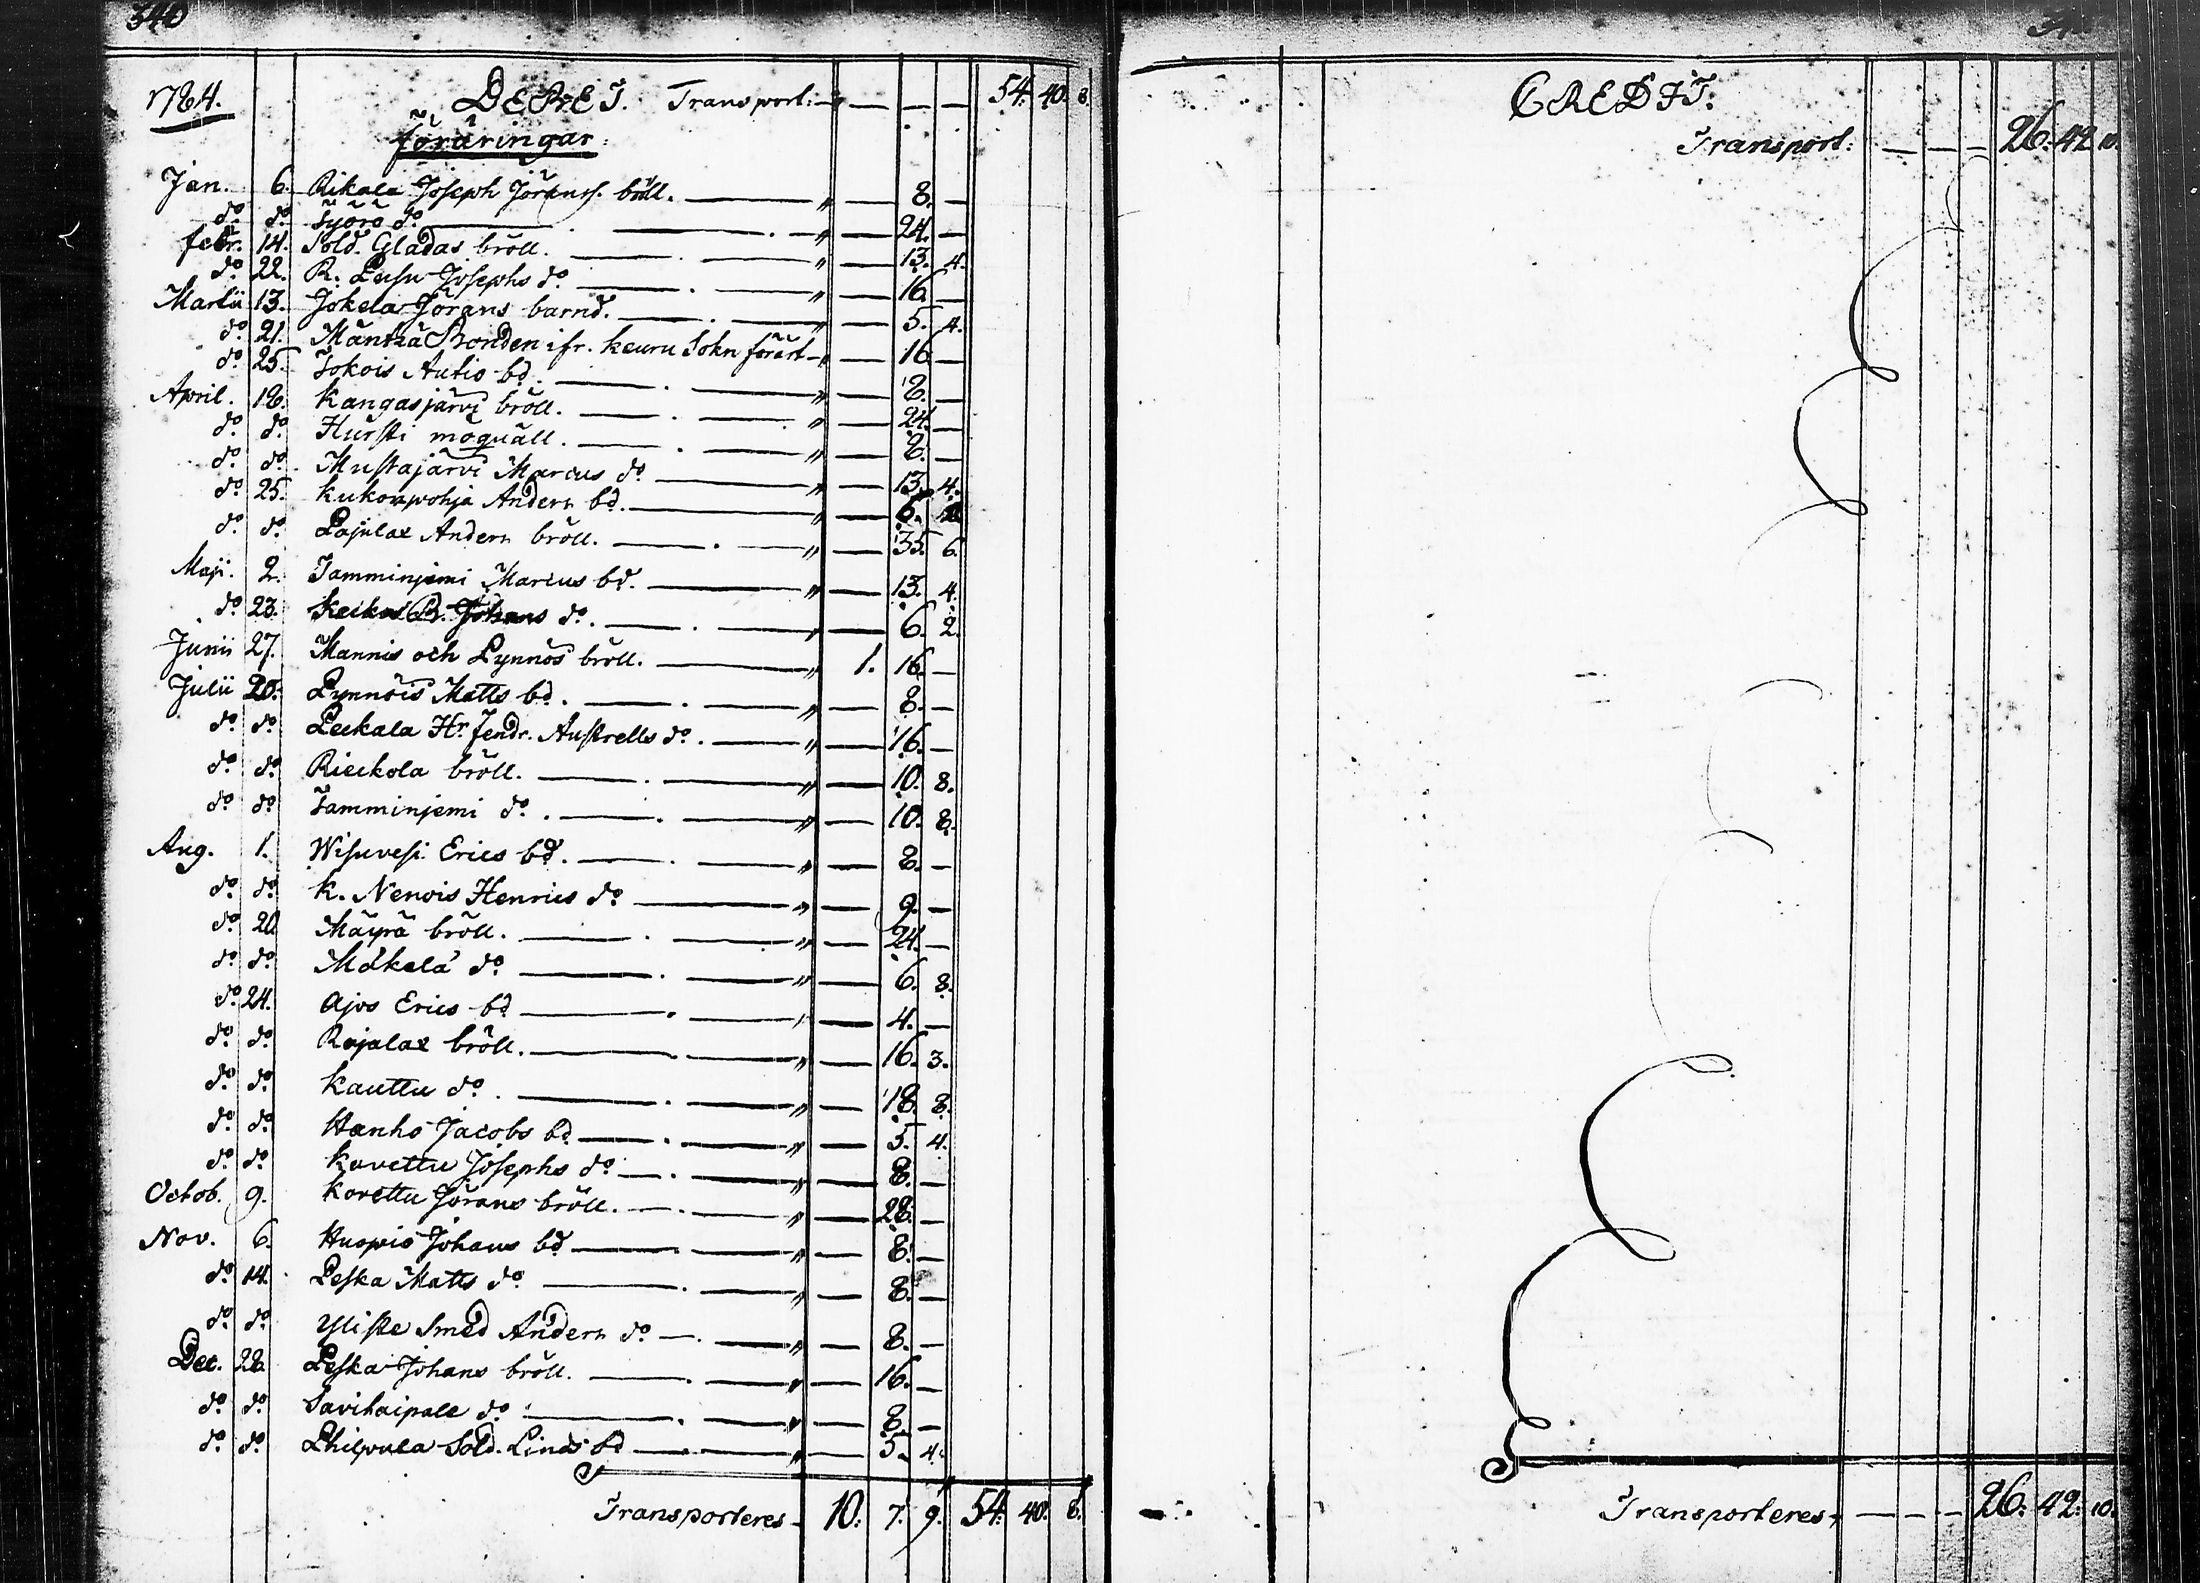 340
1784. DEBET. Transport: 54. 40. 8.
föräringar:
Jan. 6. Rikala Joseph Jöranss. bröll. 8. —
do. do. Sjörö do. 24. —
febr. 14. Sold. Gladas bröll. 13. 4.
do. 22. R. Pusu Josephs do. 16. —
Martii 13. Jokela Jörans barnd. 5. 4.
do. 21. Mänttä Bonden ifr. keuru Sokn förärt 16. —
do. 25. Jokois Autio bd. 8. —
April. 18. Kangasjärvi bröll. 24. —
do. do. Hursti mögiäll. 8. —
do. do. Mustajärvi Marcus do. 13. 4.
do. 25. Kukonpohja Anders bd. 6.
do. do. Pajulax Anders bröll. 35. 6.
Maji. 2. Tamminjemi Marcus bd. 13. 4.
do. 23. Johans do. 6. 2.
Junii 27. Mannis och Lynnös bröll. 1. 16. —
Julii 20. Lynnöis Matts bd. 8. —
do. do. Peckala Hr. fendr. Austrells do. 16. —
do. do. Rieckola bröll. 10. 8.
do. do. Tamminjemi do. 10. 8.
Aug. 1. Wisuvesi Erics bd. 8. —
do. do. K. Nenois Henrics do. 9. —
do. 20 Mäyrä bröll. 24. —
do. do. Mäkelä do. 6. 8.
do. 24. Ajos Erics bd 4. —
do. do. Rajalax bröll. 16. 3.
do. do. Kauttu do. 18. 8.
do. do. Hanho Jacobs bd 5. 4.
do. do. Kovettu Josephs do. 8. —
Octob. 9. Kovettu Jörans bröll. 28. —
Nov. 6. Huopis Johans bd 8. —
do. 14. Peska Matts do. 8. —
do. do. Yliste Smed Anders do. 8. —
Dec. 28. Peska Johans bröll. 16. —
do. do. Savihaipale do. 8. —
do. do. Philpula Sold. Linds bd 5. 4.
Transporteres 10. 7. 9. 54. 40. 8.
CREDIT:
Transport: 26. 42. 10.
Transporteres 26. 42. 10.